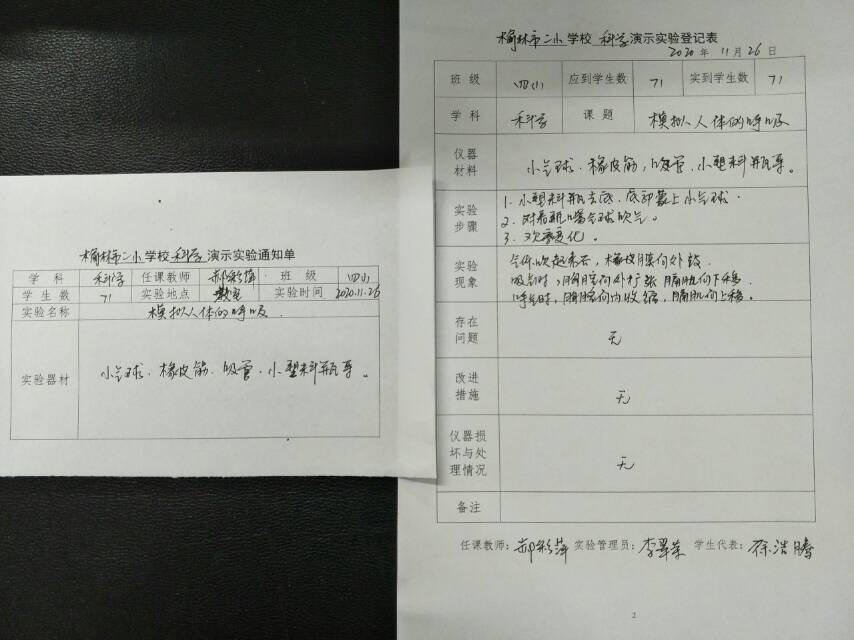 榆林市二小学校 科学 演示实验通知单
学 科 科学 任课教师 郝彩萍 班 级 四(1)
学 生 数 71 实验地点 教室 实验时间 2020.11.26
实验名称 模拟人体的呼吸
实验器材 小气球、橡皮筋、吸管、小塑料瓶等。
榆林市二小学校 科学 演示实验登记表
2020年 11月 26日
班 级 四(1) 应到学生数 71 实到学生数 71
学 科 科学 课 题 模拟人体的呼吸
仪器
材料
小气球、橡皮筋、吸管、小塑料瓶等。
实验
步骤
1. 小塑料瓶去底,底部蒙上小气球.
2. 对着瓶口嘴气球吹气。
3. 观察变化。
实验
现象
气体吹起来后,橡皮膜向外鼓.
吸气时,胸腔向外扩张 膈肌向下移.
呼气时,胸腔向内收缩,膈肌向上移。
存在
问题
无
改进
措施
无
仪器损
坏与处
理情况
无
备注
任课教师:郝彩萍 实验管理员:李翠荣 学生代表:徐浩腾
2